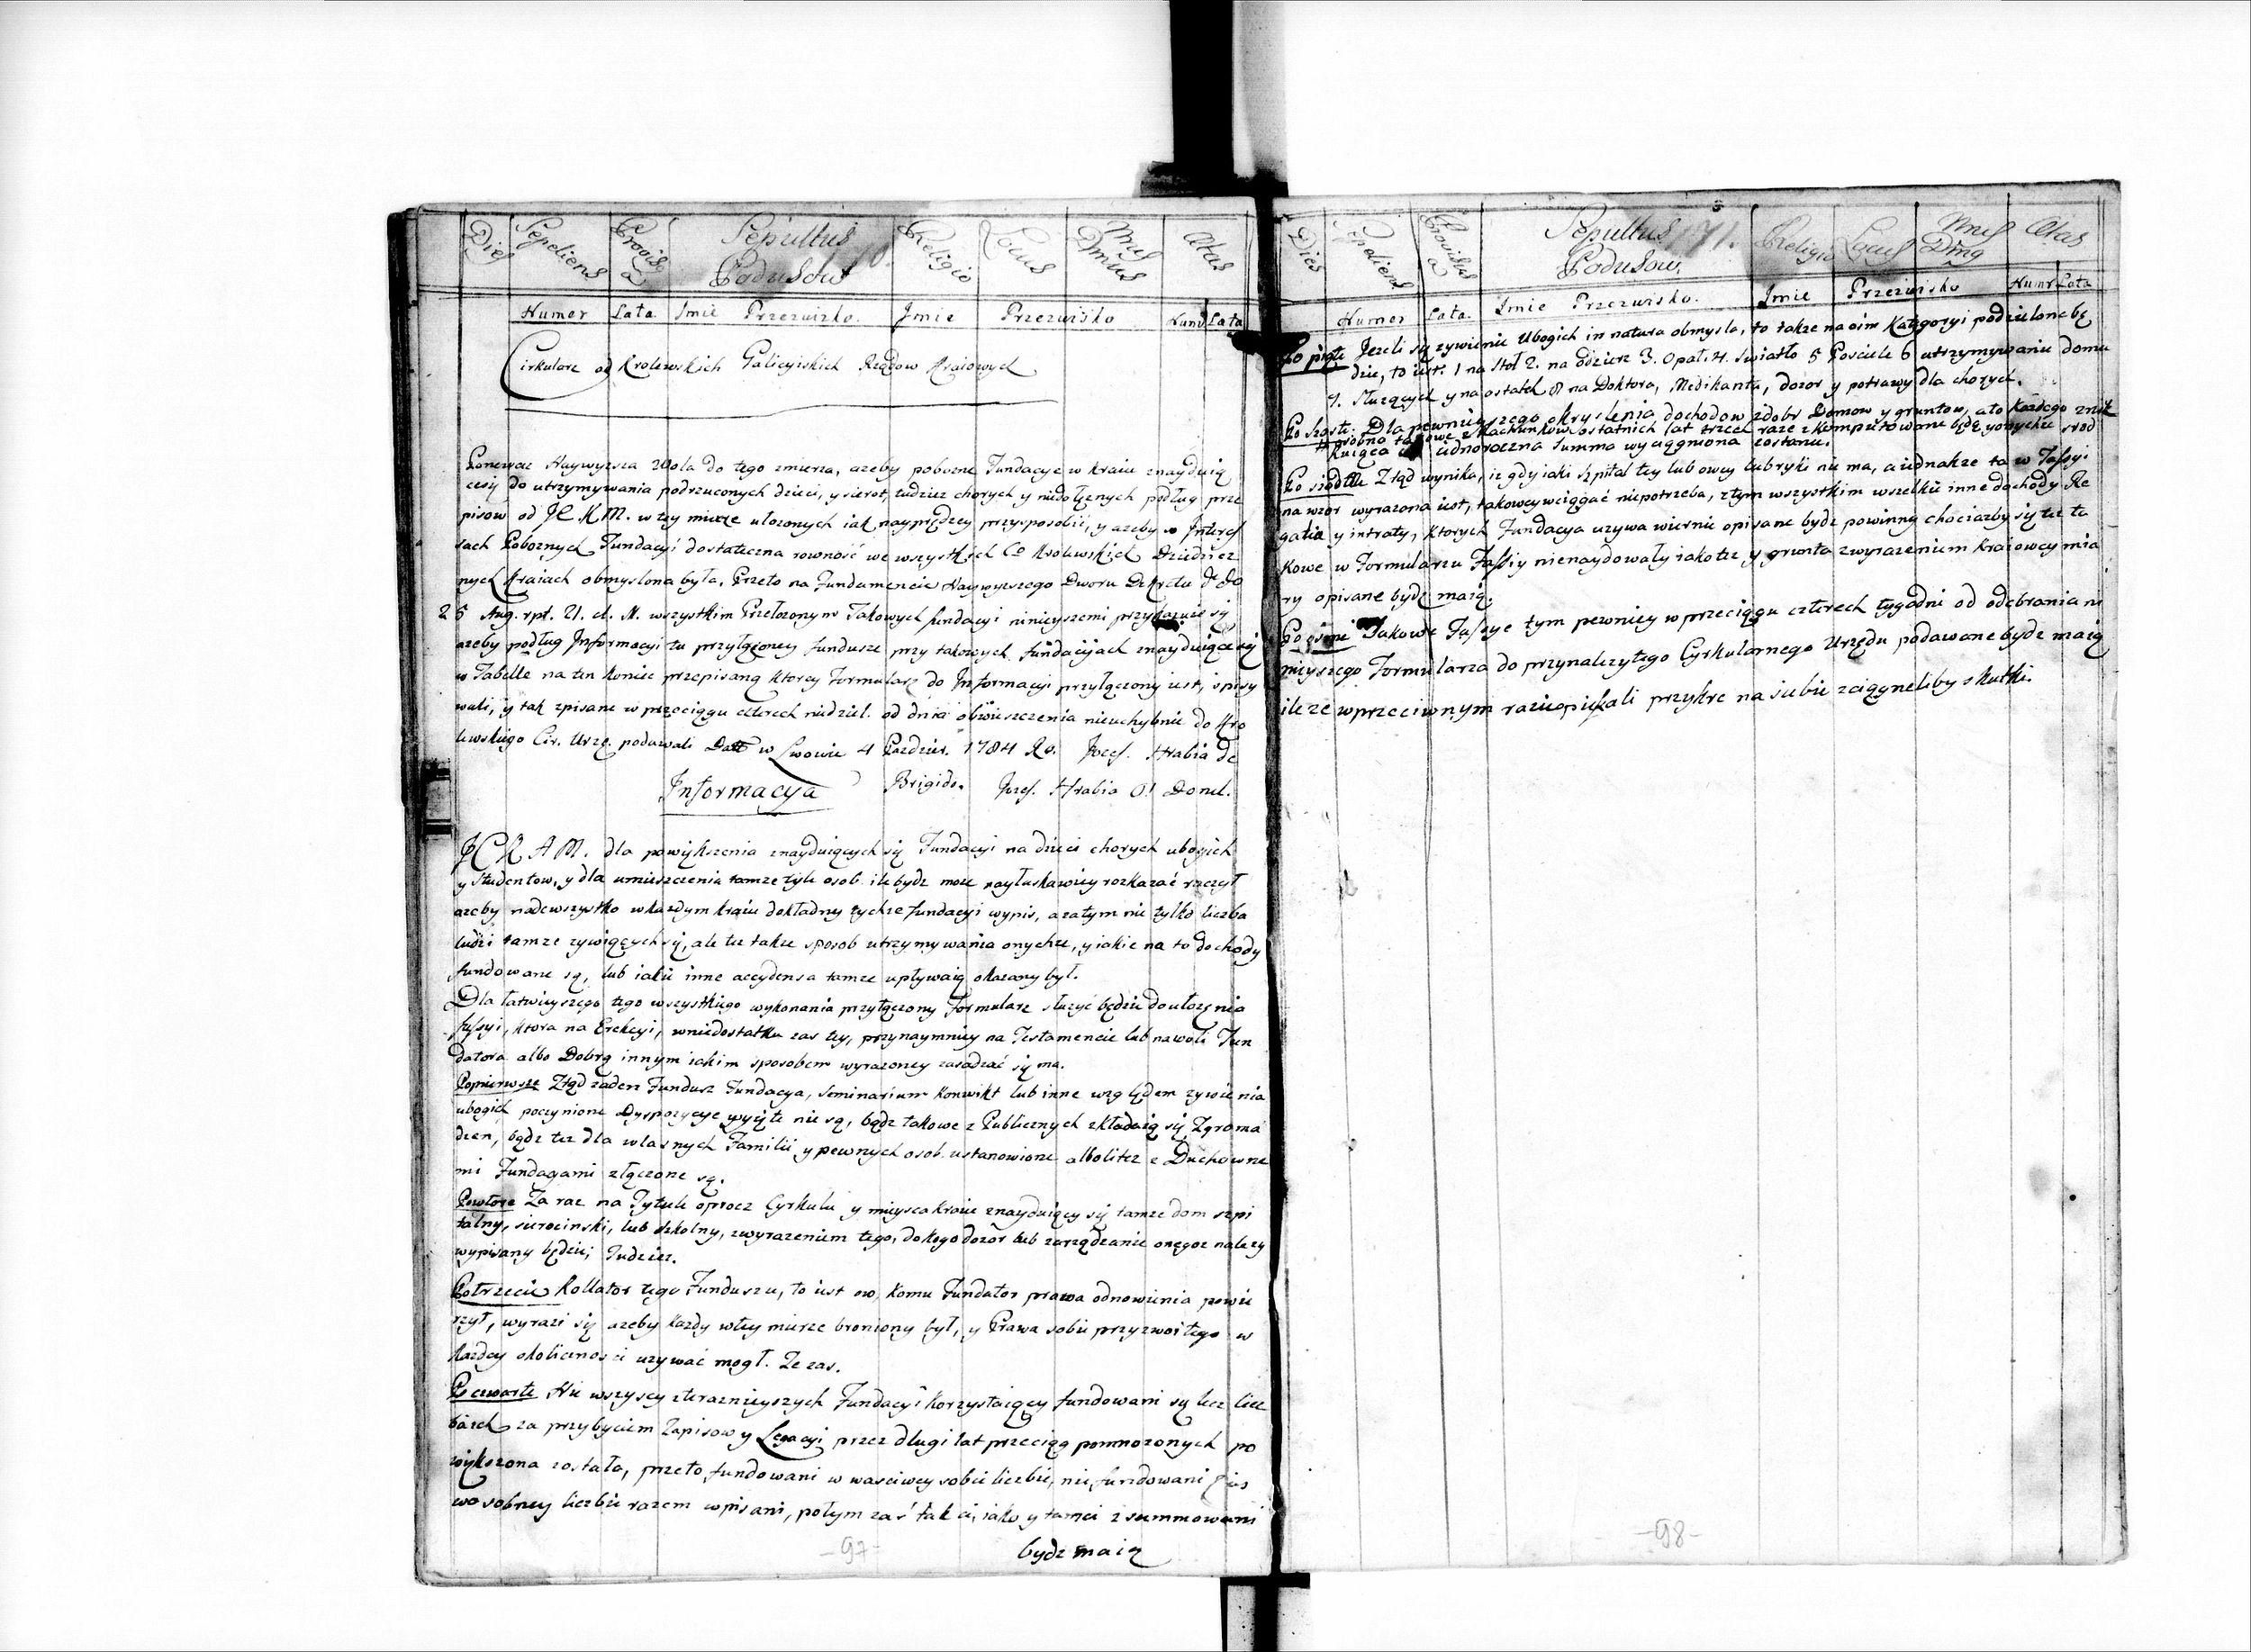 Dies Sepeliens Provisa Sepultus Religio Locus Annus Ætas
Podusow Dmus
Numer Lata Imie Przezwizko. Imie Przezwisko Num Lata
Cirkularz od Krolewskich Galicyiskich Rządow Kraiowych
Poniewaz Naywyzsza Wola do tego zmierza, azeby pobozne Fundacye w kraiu znayduią
cesię do utrzymywania podrzuconych dzieci, y sierot, tudziez chorych y niedołęznych podług prze
pisow od JCKM. w tey mierze ułozonych iak nayprędzey przysposobić, y azeby w Interes
sach Poboznych Fundacyi dostateczna rowność we wszystkich Co Krolewskich Dziedzicz
nych Kraiach obmyslona była. Przeto na Fundamencie Naywyzszego Dworu Dekretu dedo
25 Aug. rpt. 21. d. M. wszystkim Przełozonym Takowych fundacyi ninieyszemi przykazuie się
azeby podług Informacyi tu przyłączoney fundusze przy takowych fundacyiach znayduiące się
w Tabelle na ten koniec przepisaną ktorey Formularz do Informacyi przyłączony iest, spisy
wali, y tak zpisane w przeciągu czterech niedziel. od dnia obwieszczenia nieuchybnie do Kro
lewskiego Cir. Urzę. podawali Datt w Lwowie 4 Pazdzier. 1784 Ro. Jozef. Hrabia de
Informacya Brigido. Jozef. Hrabia O! Donel.
JCKAM. dla powiększenia znayduiących się Fundacyi na dzieci chorych ubogich
y studentow, y dla umieszczenia tamze tyle osob ile bydz moze nayłaskawiey rozkazać raczył
azeby nadewszystko w kazdym kraiu dokładny tychze fundacyi wypis, a zatym nie tylko liczba
ludzi tamze zywiących się, ale tez takze sposob utrzymywania onychze, y iakie na to dochody
fundowane są, lub iakie inne accydensa tamze upływaią okazany był.
Dla łatwieyszego tego wszystkiego wykonania przyłączony Formularz słuzyć będzie do ułozenia
fassyi, ktora na Erekcyi, w niedostatku zas tey, przynaymniey na Testamencie lub na woli Fun
datora albo Dobrą innym iakim sposobem wyrazoney zasadzać się ma.
Popierwsze Ztąd zaden Fundusz Fundacya, Seminarium Konwikt lub inne względem zywienia
ubogich poczynione Dyspozycye wyięte nie są, bądz takowe z Publicznych składaią się Zgroma
dzen, bądz tez dla własnych Familii y pewnych osob ustanowione albolitez z Duchowne
mi Fundagami złączone są.
Powtore Za raz na Tytule oprocz Cyrkulu y mieysca kraiu znayduiący się tamze dom szpi
talny, sierocinski, lub szkolny, z wyrazeniem tego, do kogo dozór lub zarządzanie onegoz nalezy
wypisany będzie; Tudziez.
Potrzecie Kollator tego Funduszu, to iest ow, komu Fundator prawa odnowienia powie
rzył, wyrazi się azeby kazdy w tey mierze broniony był, y Prawa sobie przyzwoitego w
kazdey okolicznosci uzywać mogł. Ze zas.
Po czwarte Nie wszyscy z teraznieyszych Fundacyi korzystaiący fundowani są lecz licz
bazch za przybyciem Zapisow y Legacyi przez długi lat przeciąg pomnozonych po
większona została, przeto fundowani w wasciwey sobie liczbie, nie fundowani zas
w osobney liczbie razem wpisani, potym zaś tak ci, iako y tamci zsummowani
bydz maią
-97-
Dies Sepeliens Provisus Sepultus 171. Religio Locus Annus Ætas
Podusow.
Numer Lata. Imie Przezwisko. Imie Przezwisko Numr Lata
Po piąte Jezeli się zywienie Ubogich in natura obmysla, to takze na osm Kategoryi podzielone bę
dzie, to iest. 1 na Stoł 2. na Odziez 3. Opał. 4. Swiatło 5 Posciele 6 utrzymywanie domu
7. Sluzących y na ostatek 8 na Doktora, Medikanta, dozor y potrawy dla chorych.
Po szoste. Dla pewnieyszego okryslenia dochodow z dobr Domow y gruntow, a to kazdego
osobno takowe z Rachunkow ostatnich lat trzech raze zkomputowane będą y onychze srod
iednoroczna Summa wyciągniona zostanie.
Po siodme Ztąd wynika, iz gdy iaki szpital tey lub owey lubryki nie ma, a iednakze ta w Fassyi
na wzor wyrazona iest, takowey wciągać niepotrzeba, z tym wszystkim wszelkie inne dochody Re
galia y intraty, ktorych Fundacya uzywa wiernie opisane bydz powinny chociazby się tez ta
kowe w Formularzu Fassiy nienaydowały iako tez y grunta z wyrazeniem kraiowey mia
ry opisane bydz maią.
Po osme Takowe Fassye tym pewniey w przeciągu czterech tygodni od odebrania ni
nieyszego Formularza do przynalezytego Cyrkularnego Urzędu podawane bydz maią
ile ze w przeciwnym razie opieszali przykre na siebie zciągneliby skutki.
-98-